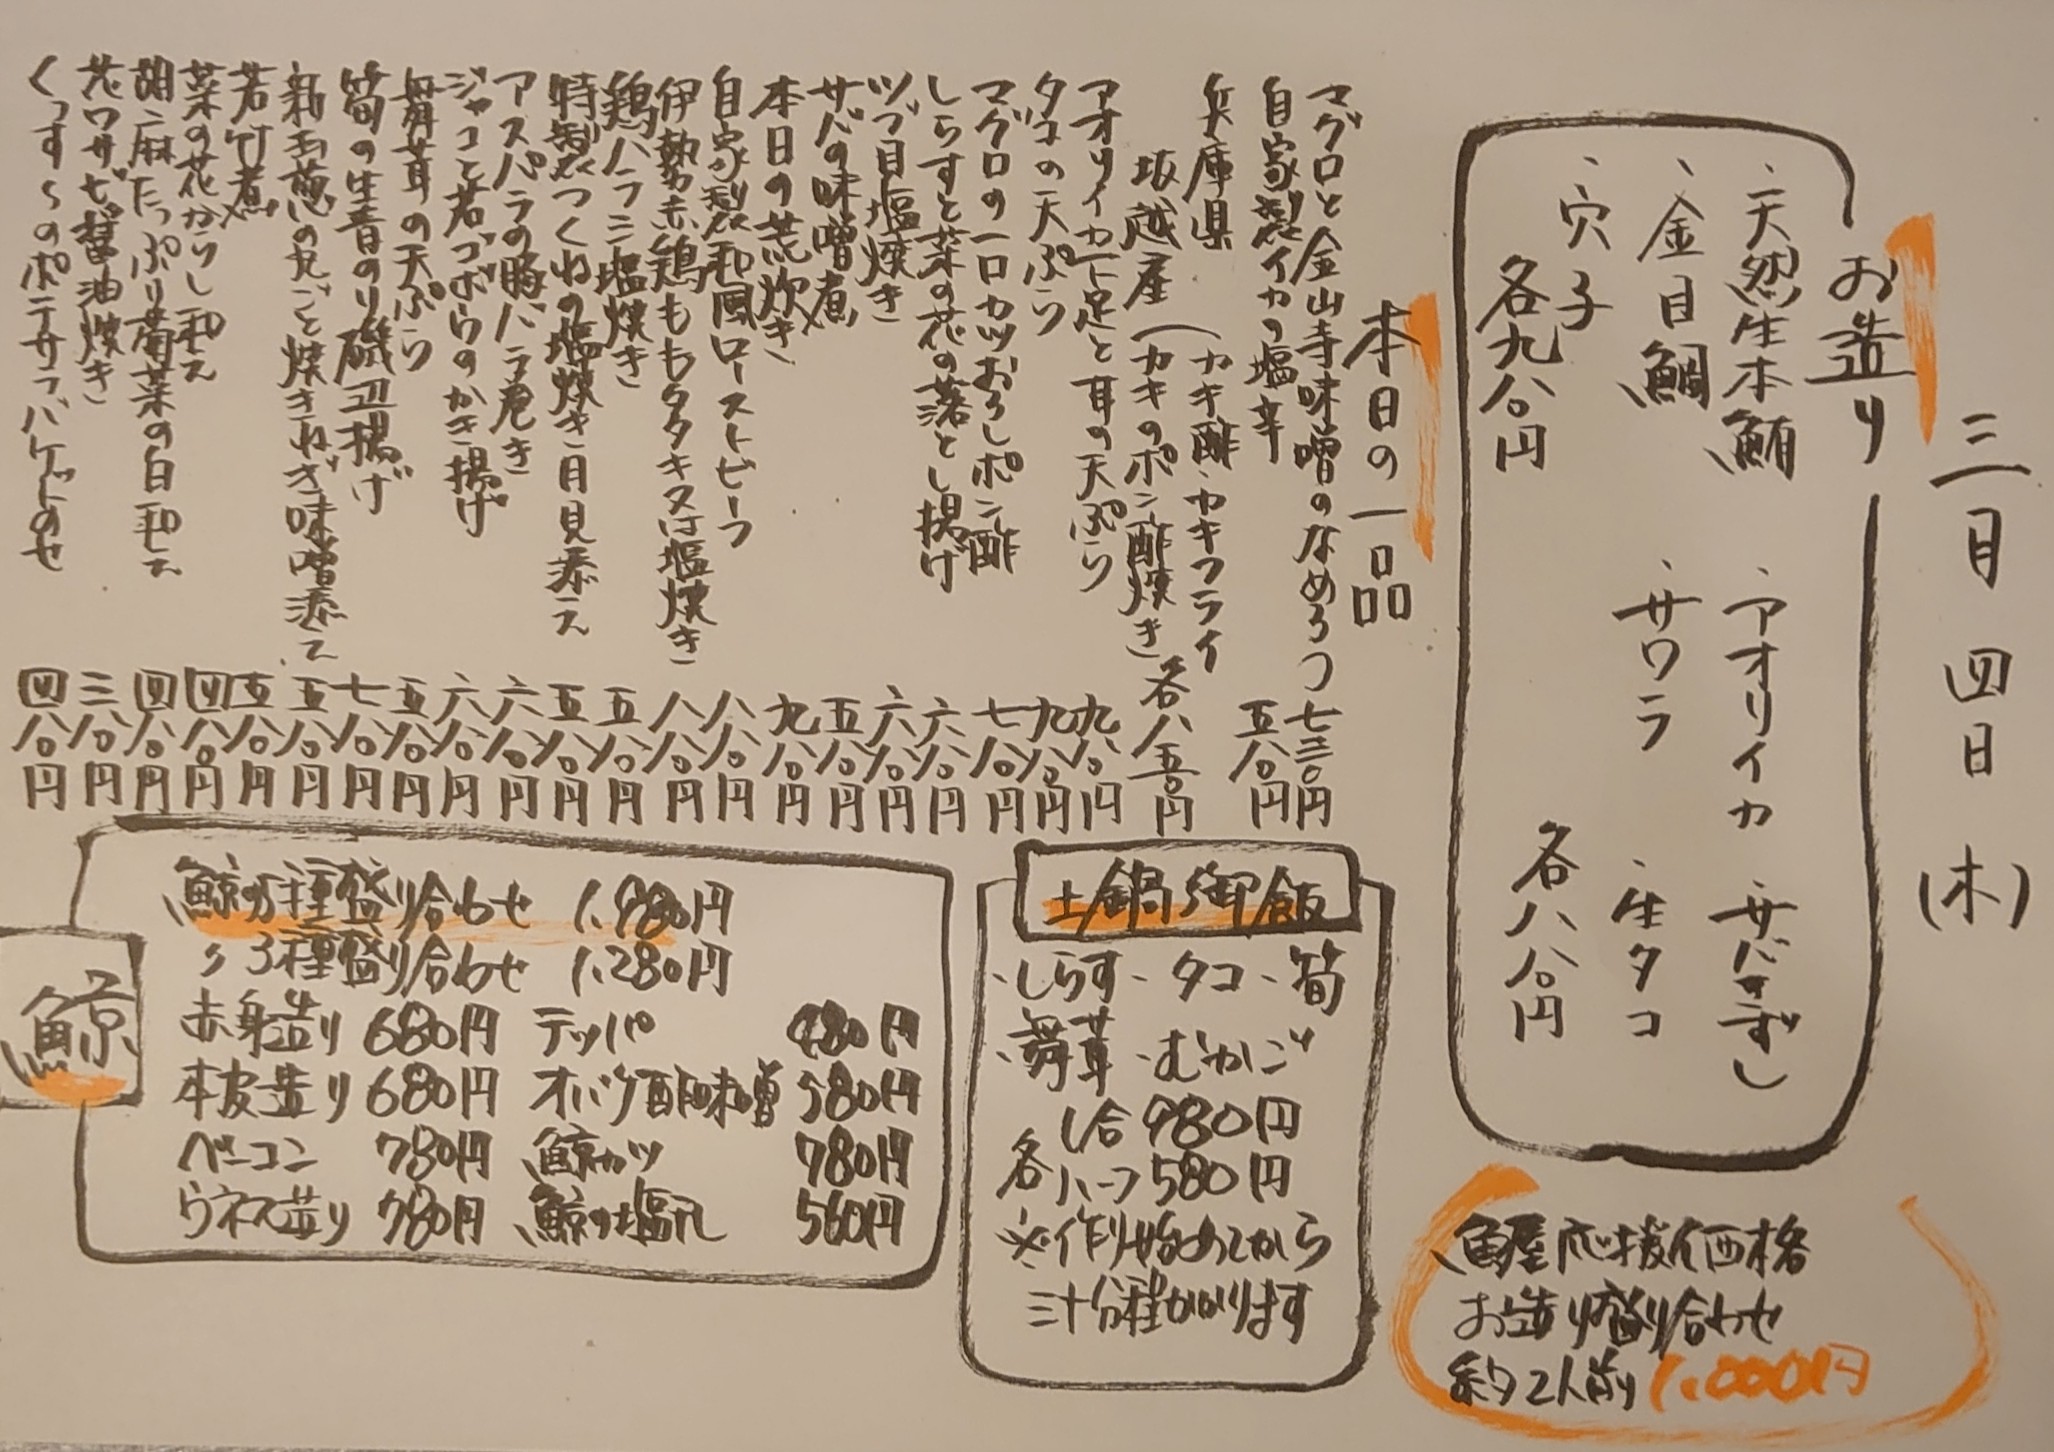 三月四日(木)
お造り
、天然生本鮪 、アオリイカ 、サバきずし
、金目鯛 、サワラ 、生タコ
、穴子
各九八〇円 各八八〇円
本日の一品
マグロと金山寺味噌のなめろう 七三〇円
自家製イカの塩辛 五八〇円
兵庫県 坂越産 (カキ酢、カキフライ
(カキのポン酢焼き 各八五〇円
アオリイカ下足と耳の天ぷら 九八〇円
タコの天ぷら 九八〇円
マグロの一口カツおろしポン酢 七八〇円
しらすと菜の花の落とし揚げ 六八〇円
ツブ貝塩焼き 六八〇円
サバの味噌煮 五八〇円
本日の荒炊き 九八〇円
自家製和風ローストビーフ 八八〇円
伊勢赤鶏ももタタキ又は塩焼き 八八〇円
鶏ハラミ塩焼き 五八〇円
特製つくねの塩焼き月見添え 五八〇円
アスパラの豚バラ巻き 六八〇円
ジャコと若ゴボウのかき揚げ 六八〇円
舞茸の天ぷら 五八〇円
筍の生青のり磯辺揚げ 七八〇円
新玉葱の丸ごと焼きねぎ味噌添え 五八〇円
若竹煮 五八〇円
菜の花からし和え 四八〇円
胡麻たっぷり菊菜の白和え 四八〇円
花ワサビ醤油焼き 三八〇円
くっす〜のポテサラバケットのせ 四八〇円
土鍋御飯
、しらす、タコ、筍
、舞茸、むかご
各 1合 980円
ハーフ 580円
※作り始めてから
三十分程かかります
鯨
鯨の5種盛り合わせ 1.980円
〃 3種盛り合わせ 1.280円
赤身造り 680円 テッパ 480円
本皮造り 680円 オバケ酢味噌 580円
ベーコン 780円 鯨カツ 780円
ウネス造り 780円 鯨の塩 560円
魚屋応援価格
お造り盛り合わせ
約2人前 1.000円